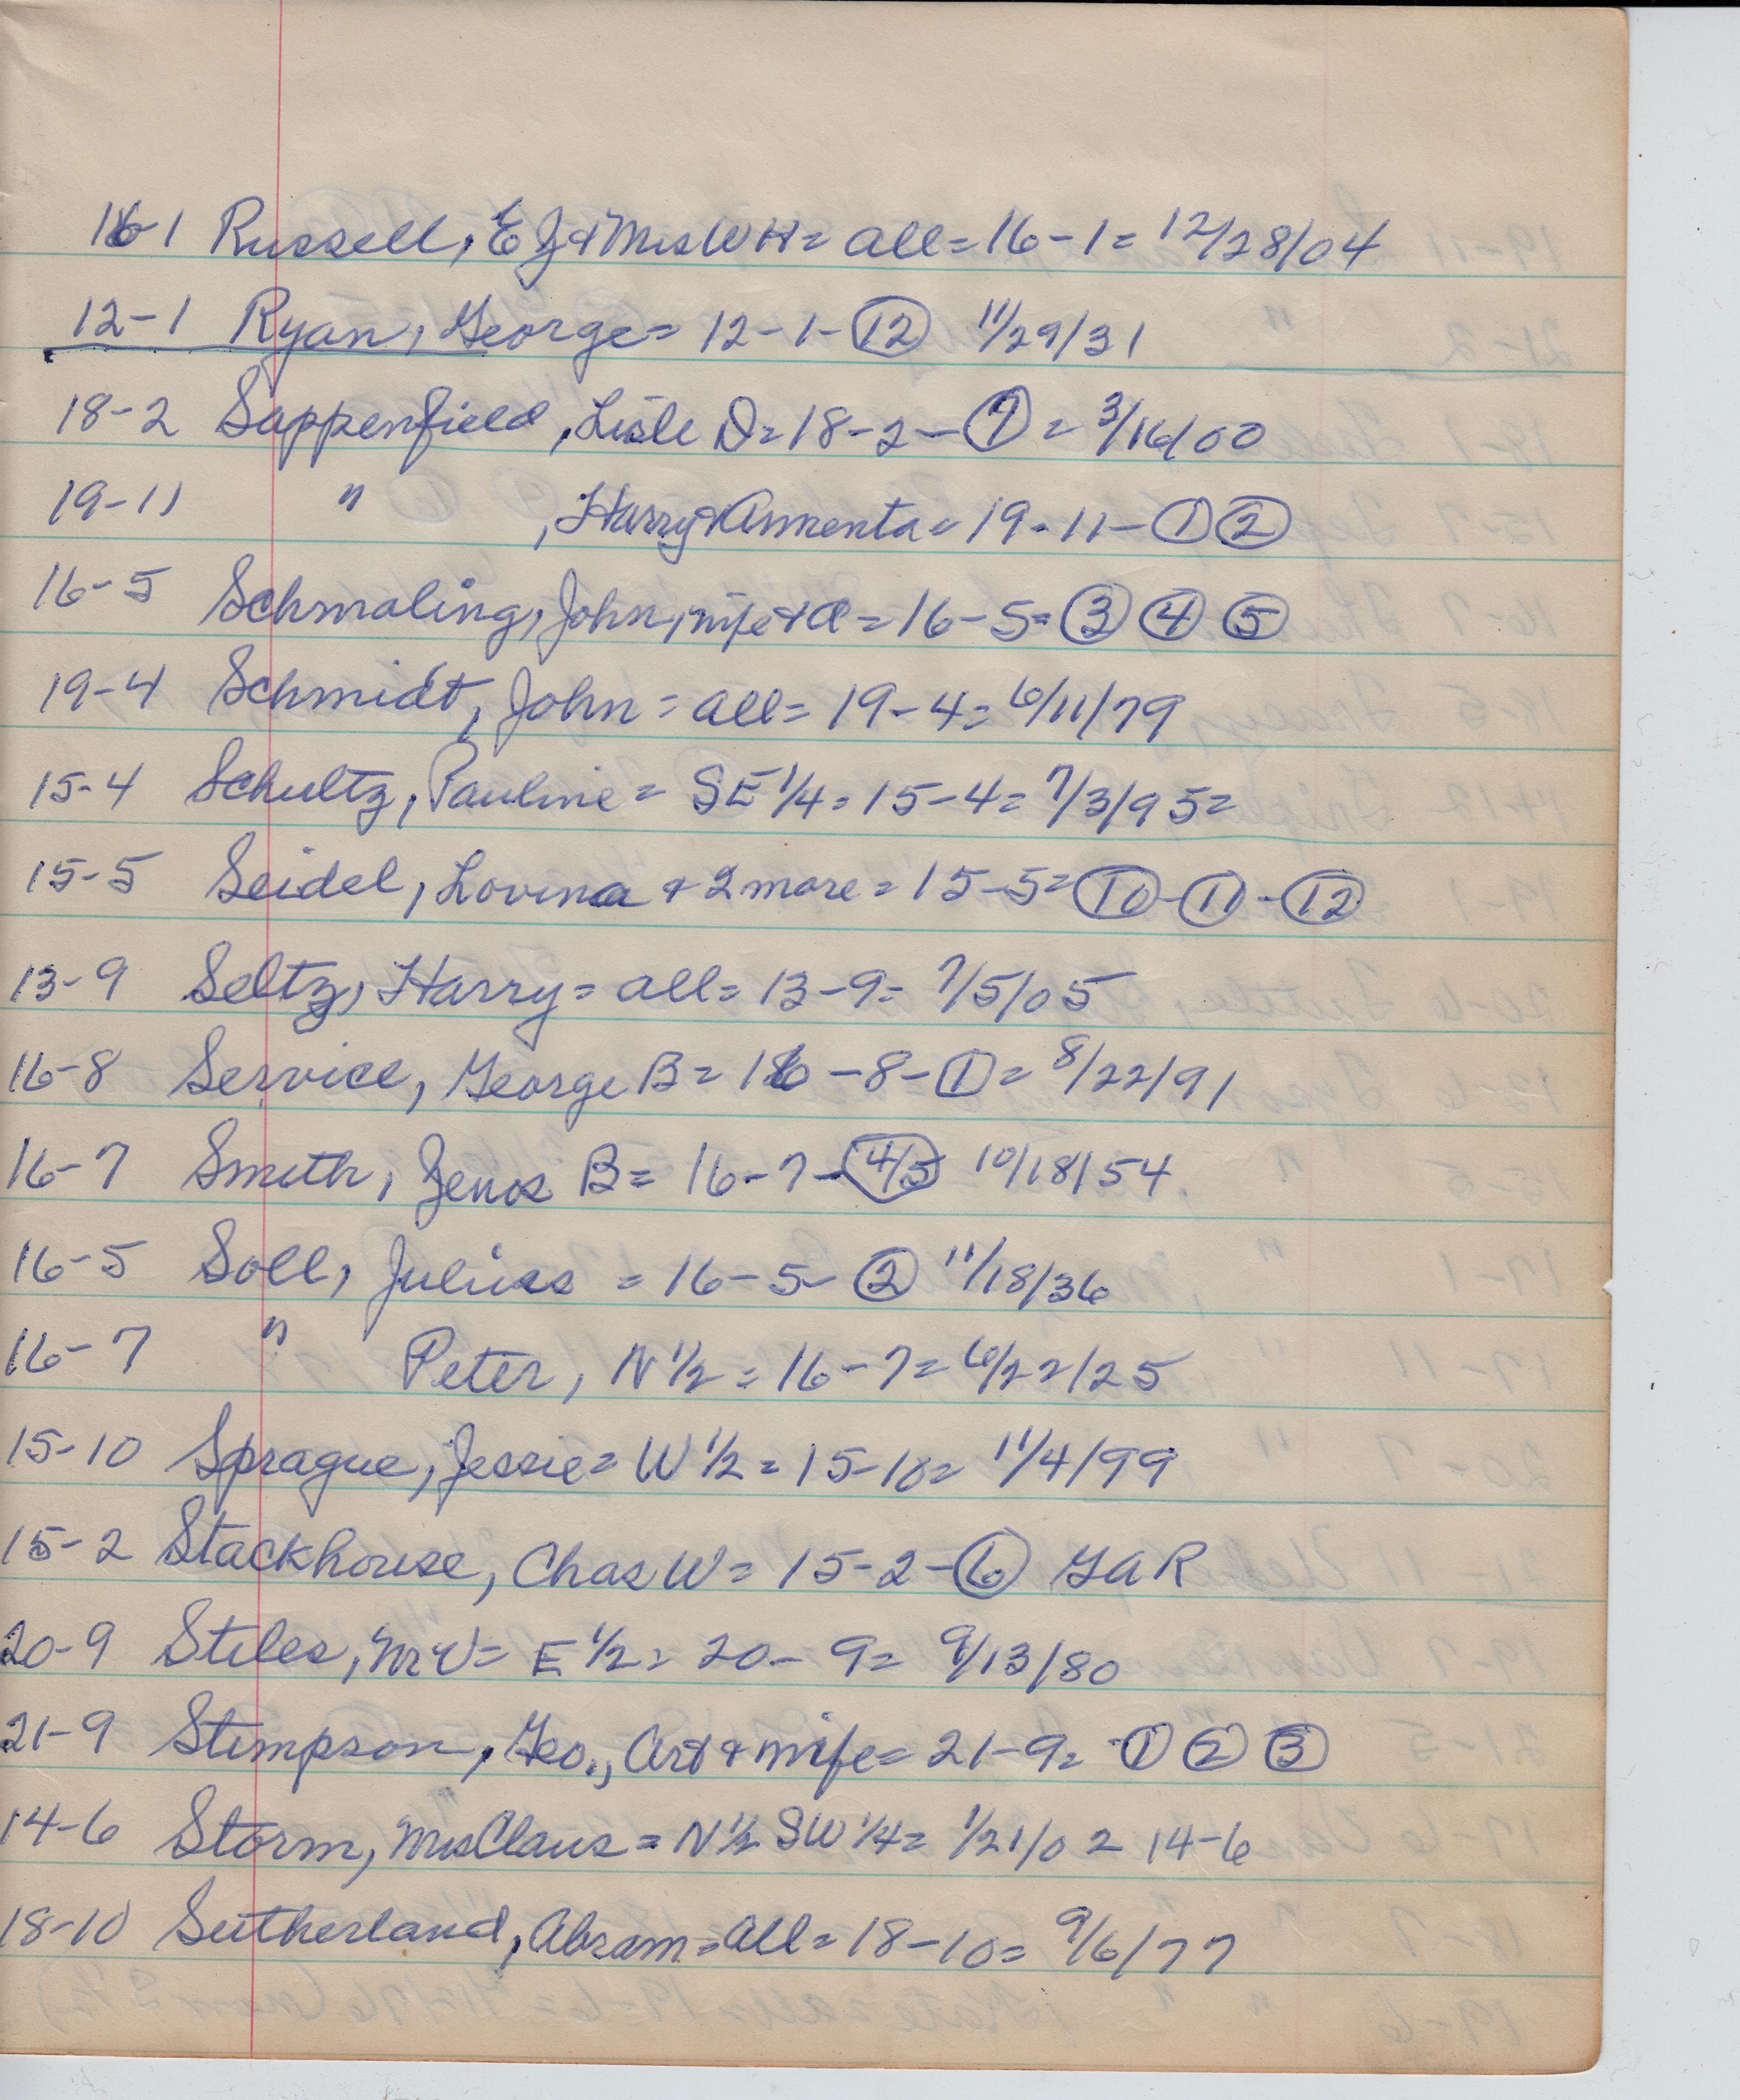 16-1 Russell, E J & Mrs W H = all = 16-1 = 12/28/04
12-1 Ryan, George = 12-1-⑫ 11/29/31
18-2 Sappenfield, Lisle D = 18-2-⑦ = 3/16/00
19-11 " , Harry & Armenta = 19-11-①②
16-5 Schmaling, John, wife & = 16-5-③④⑤
19-4 Schmidt, John = all = 19-4 = 6/11/79
15-4 Schultz, Pauline = SE 1/4 = 15-4 = 7/3/95 =
15-5 Seidel, Lovina & 2 more = 15-5 = ⑩-⑪-⑫
13-9 Seltz, Harry = all = 13-9 = 7/5/05
16-8 Service, George B = 16-8-① = 8/22/91
16-7 Smith, Zenos B = 16-7-(4/5) 10/18/54
16-5 Soll, Julius = 16-5-② 11/18/36
16-7 " Peter, N 1/2 = 16-7 = 6/22/25
15-10 Sprague, Jessie = W 1/2 = 15-10 = 11/4/99
15-2 Stackhouse, Chas W = 15-2-⑥ GAR
20-9 Stiles, M V = E 1/2 = 20-9 = 9/13/80
21-9 Stimpson, Geo., Art & wife = 21-9 = ①②③
14-6 Storm, Mrs Claus = N 1/2 SW 1/4 = 1/21/02 14-6
18-10 Sutherland, Abram = all = 18-10 = 9/6/77